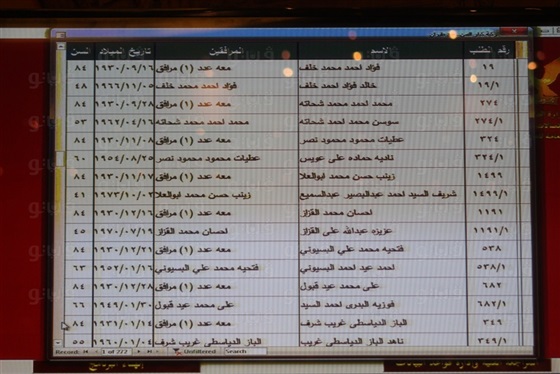 رقم الطلب الاسم المرافقين تاريخ الميلاد السن
١٩ فؤاد احمد محمد خلف معه عدد (١) مرافق ١٩٣٠/٠٩/١٦ ٨٤
١٩/١ خالد فؤاد احمد خلف فؤاد احمد محمد خلف ١٩٦٦/١١/٠٥ ٤٨
٢٧٤ محمد احمد محمد شحاته معه عدد (١) مرافق ١٩٣٠/٠٩/٢٨ ٨٤
٢٧٤/١ سوسن محمد احمد شحاته محمد احمد محمد شحاته ١٩٦٢/٠٤/١٦ ٥٣
٣٢٤ عطيات محمود محمود نصر معه عدد (١) مرافق ١٩٣٠/١١/٠٨ ٨٤
٣٢٤/١ ناديه حماده على عويس عطيات محمود محمود نصر ١٩٥٤/٠٨/٢٥ ٦٠
١٤٩٩ زينب حسن محمد ابوالعلا معه عدد (١) مرافق ١٩٣٠/١١/١٧ ٨٤
١٤٩٩/١ شريف السيد احمد عبدالبصير عبدالسميع زينب حسن محمد ابوالعلا ١٩٧٣/١٠/٠٢ ٤١
١١٩١ احسان محمد القزاز معه عدد (١) مرافق ١٩٣٠/١٢/١٦ ٨٤
١١٩١/١ عزيزه عبدالله على القزاز احسان محمد القزاز ١٩٧٠/٠٧/١٩ ٤٥
٥٣٨ فتحيه محمد علي البسيوني معه عدد (١) مرافق ١٩٣٠/١٢/٢١ ٨٤
٥٣٨/١ احمد عيد احمد البسيوني فتحيه محمد علي البسيوني ١٩٥٢/٠١/١٦ ٦٣
٦٨٢ على محمد عيد قبول معه عدد (١) مرافق ١٩٣٠/١٢/٢٨ ٨٤
٦٨٢/١ فوزيه البدرى احمد السيد على محمد عيد قبول ١٩٤٩/٠١/٣٠ ٦٦
٣٤٩ الباز الدياسطى غريب شرف معه عدد (١) مرافق ١٩٣١/٠١/١٤ ٨٤
٣٤٩/١ ناهد الباز الدياسطى غريب الباز الدياسطى غريب شرف ١٩٦٠/٠١/٠٤ ٥٥
Record: 1 of 277 Unfiltered Search